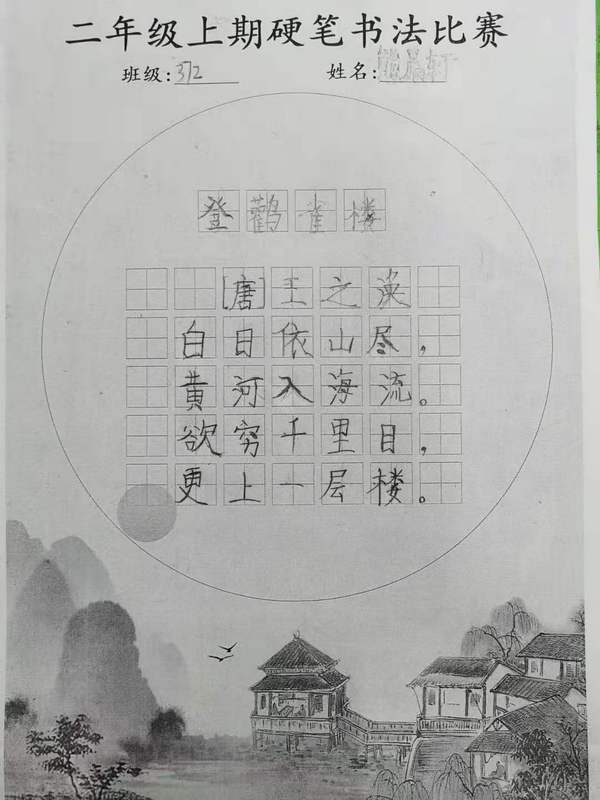 二年级上期硬笔书法比赛
班级:372 姓名:熊晨轩
登鹳雀楼
[唐]王之涣
白日依山尽，
黄河入海流。
欲穷千里目，
更上一层楼。